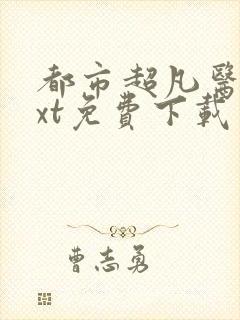 都市超凡醫
xt免費下載
曹志勇